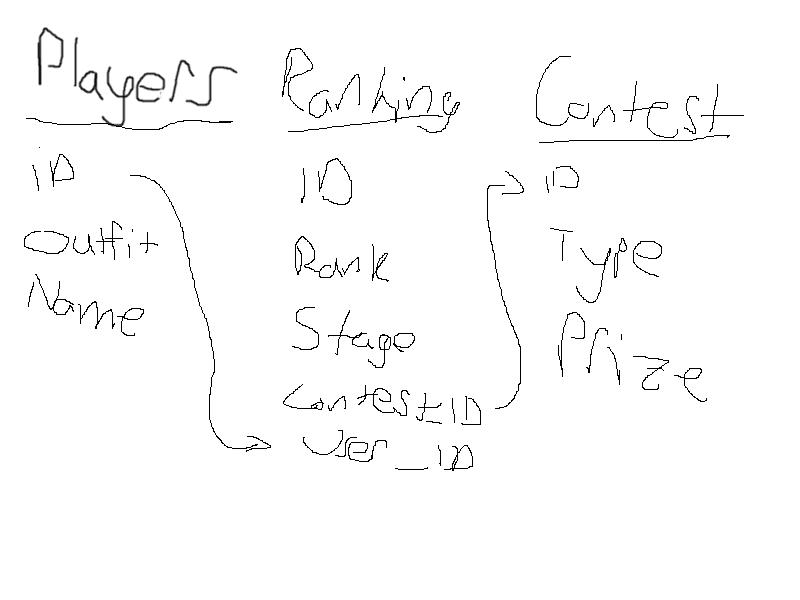 Players
iD
Outfit
Name
Ranking
ID
Rank
Stage
Contest_ID
User_ID
Contest
iD
Type
Prize